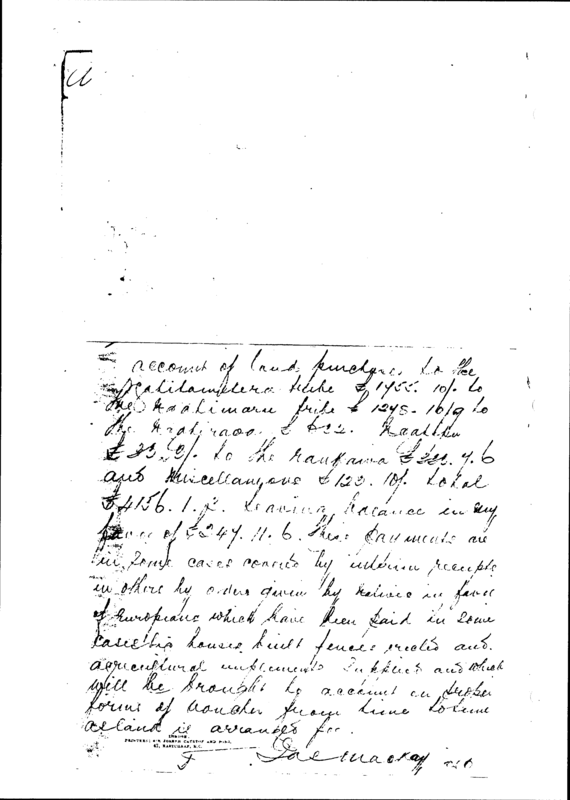 account of land purchases to the
tribe £1455. 10/- to
the Ngatimaru tribe £1248. 10/9 to
the £
£33. to the Raukawa 7. 6
and Miscellaneous £123. 10/- total
£4156. 1. Leaving balance in my
favor of £247. 11. 6. These payments are
in some cases covered by interim receipts
in others by orders given by natives in favor
of Europeans which have been paid in some
cases houses built fences erected and
agricultural implements supplied and which
will be brought to account on proper
forms of voucher from time to time
as land is arranged for.
LONDON:
Mackay